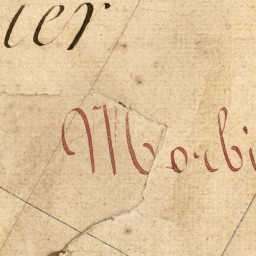 ier
Morbi